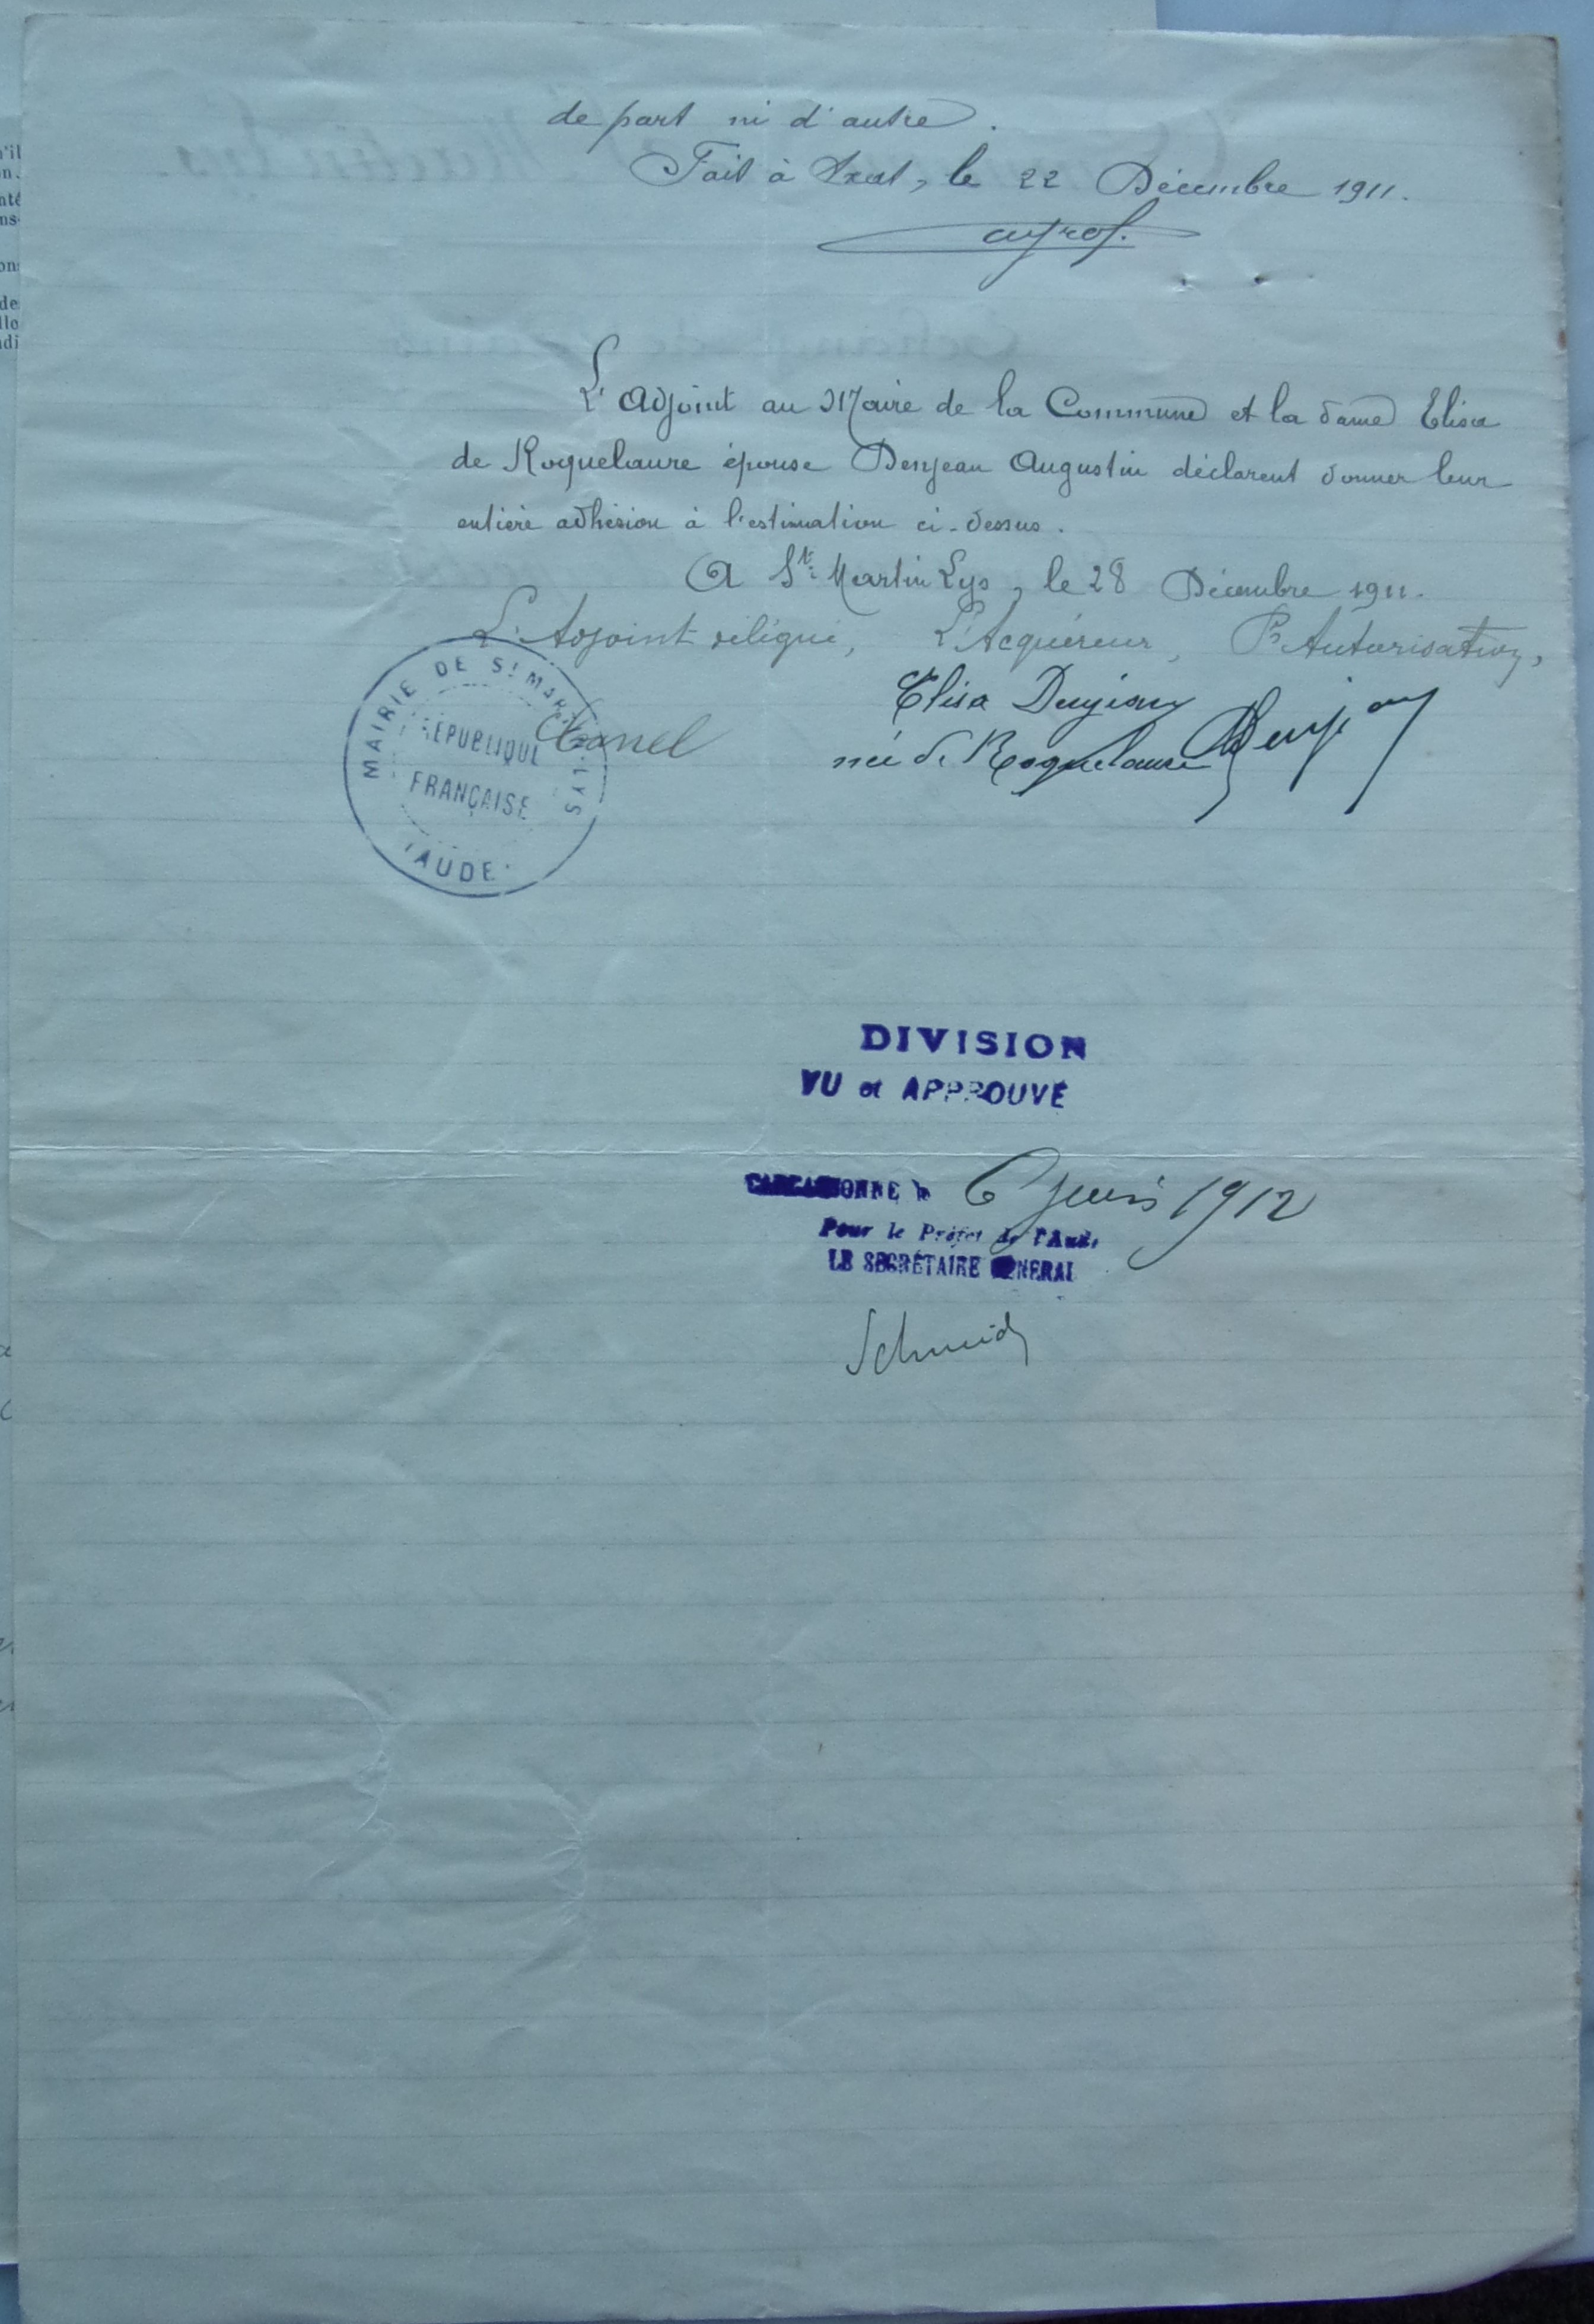 de part ni d'autre.
Fait à Axat, le 22 Décembre 1911.
L'Adjoint au Maire de la Commune et la dame Elisa
de Roquelaure épouse Denjean Augustin déclarent donner leur
entière adhésion à l'estimation ci-dessus.
A St Martin Lys, le 28 Décembre 1911.
L'Adjoint délégué, L'Acquéreur, Pr Autorisation,
Elisa Denjean
née de Roquelaure Denjean
MAIRIE DE St MARTIN LYS
REPUBLIQUE
FRANÇAISE
AUDE
DIVISION
VU et APPROUVÉ
CARCASSONNE le 6 Juin 1912
Pour le Préfet de l'Aude
LE SECRÉTAIRE GÉNÉRAL